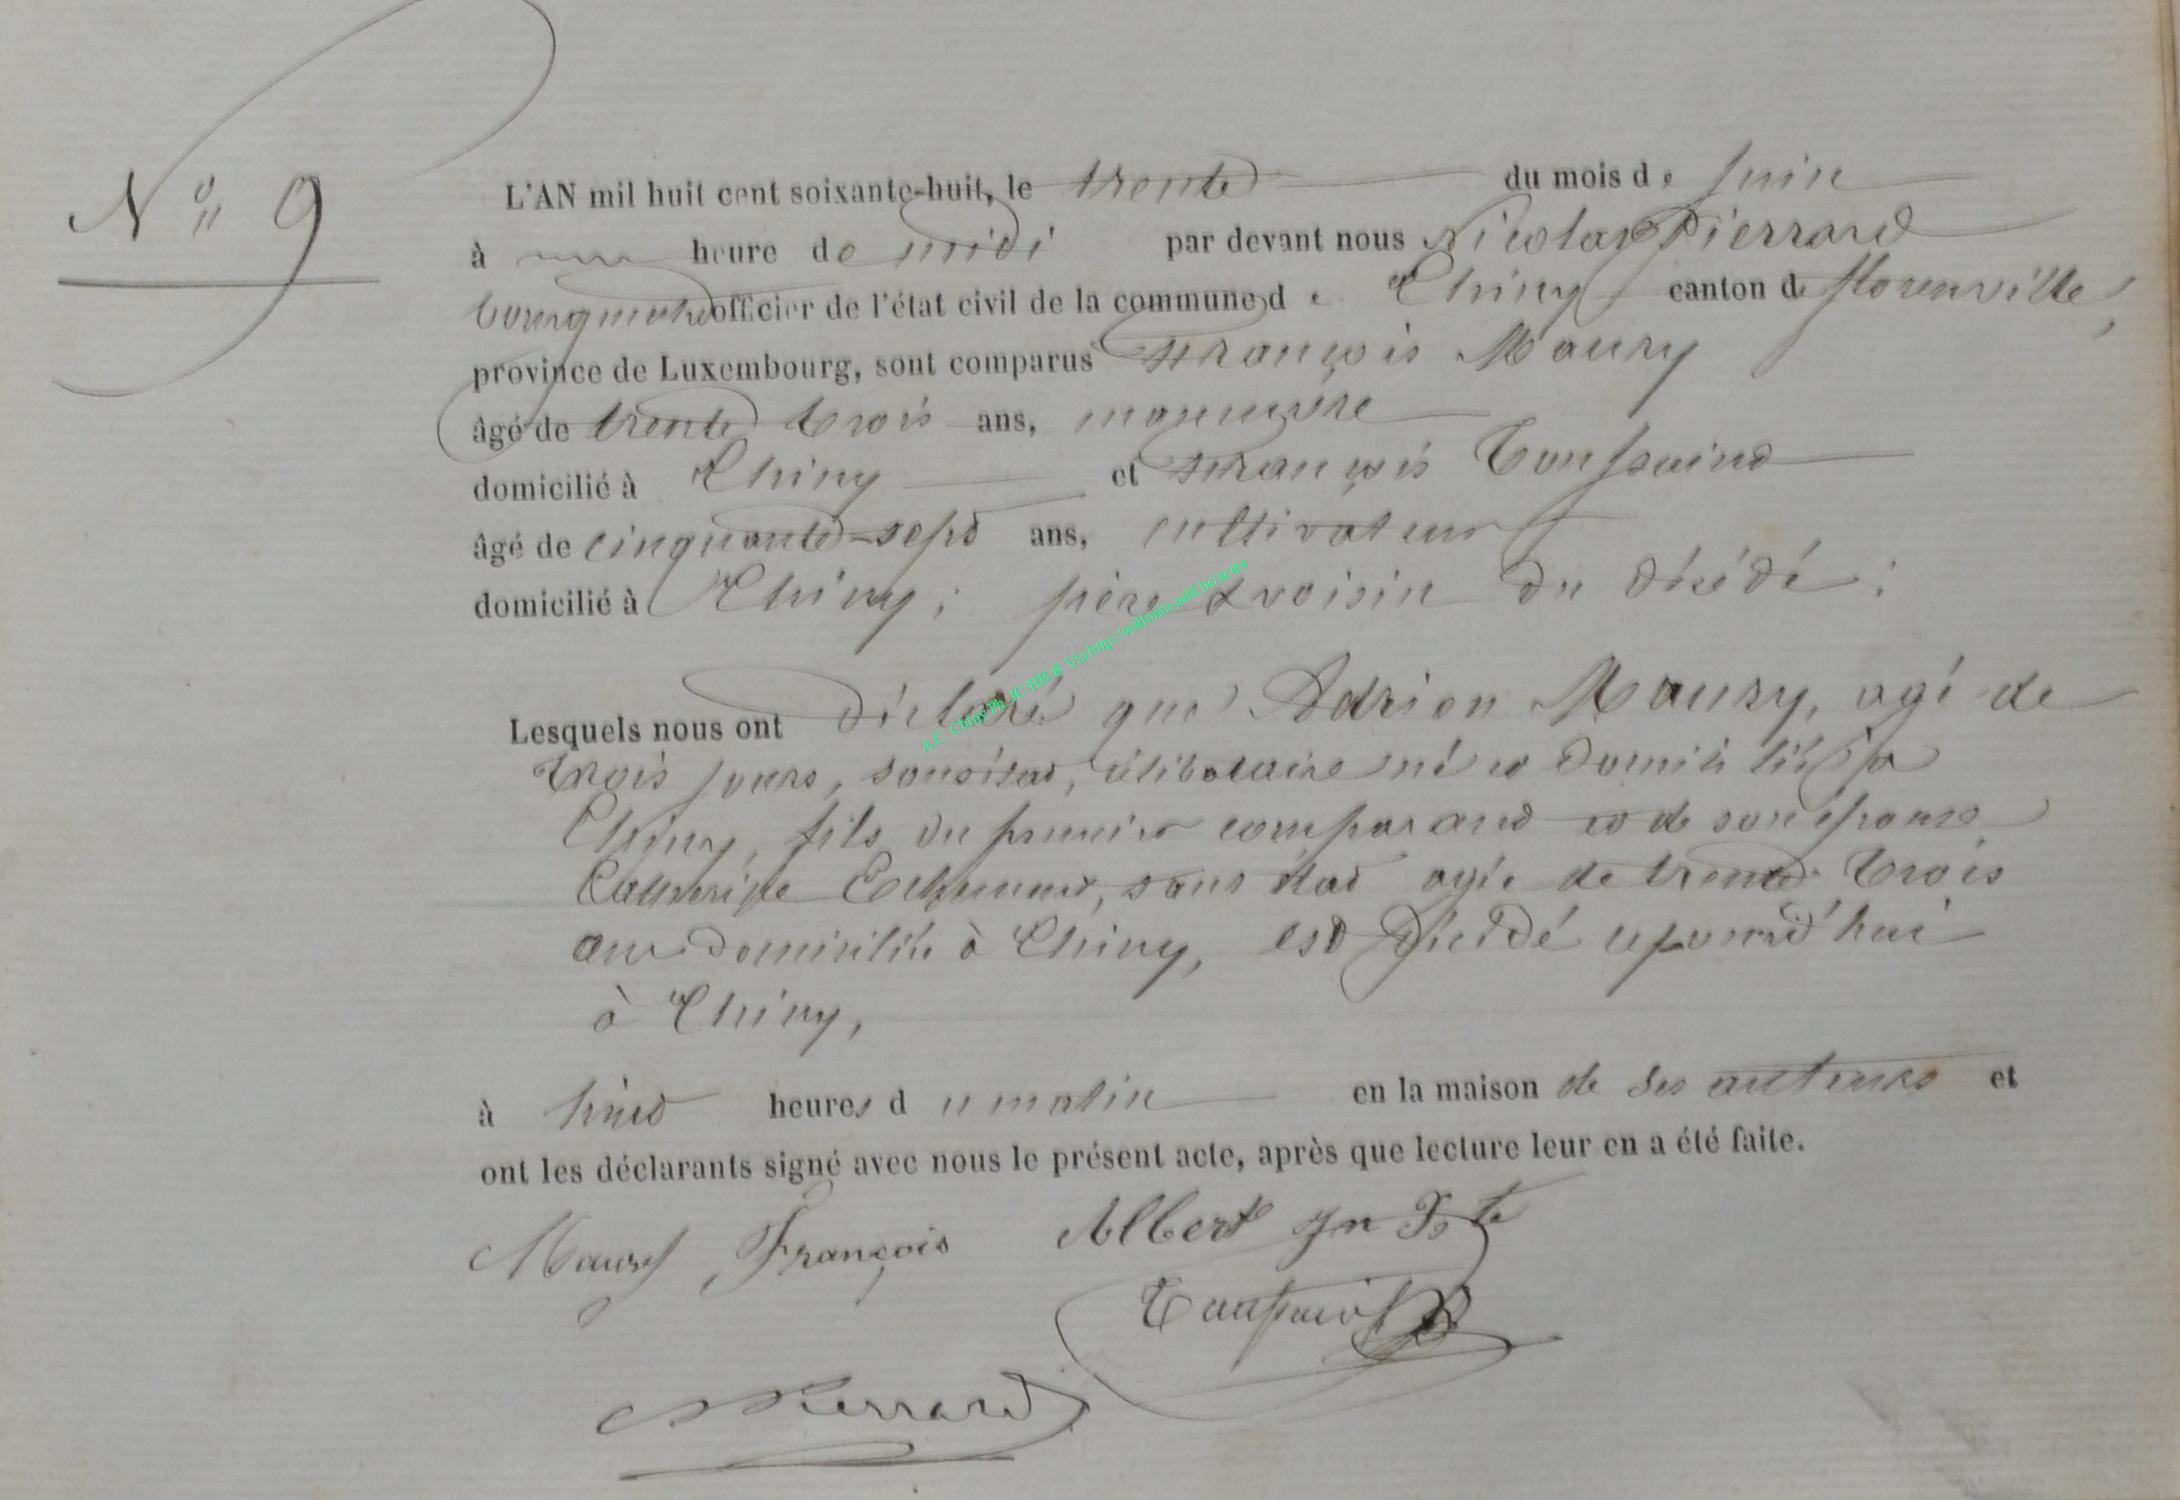 N° 9
L'AN mil huit cent soixante-huit, le trente du mois de Juin
à une heure de midi par devant nous Nicolas Pierrard
bourgmestre officier de l'état civil de la commune de Chiny canton de florenville,
province de Luxembourg, sont comparus françois Maury
âgé de trente trois ans, manœuvre
domicilié à Chiny et françois Toussaint
âgé de cinquante-sept ans, cultivateur
domicilié à Chiny; père & voisin du décédé;
Lesquels nous ont déclaré que Adrien Maury, agé de
trois jours, sans état, célibataire né et domicilié à
Chiny, fils du premier comparant et de son épouse
Catherine sans état agée de trente trois
ans domiciliée à Chiny, est décédé aujourd'hui
à Chiny,
à huit heures du matin en la maison de ses auteurs et
ont les déclarants signé avec nous le présent acte, après que lecture leur en a été faite.
Maury François Albert
Toussaint
Pierrard